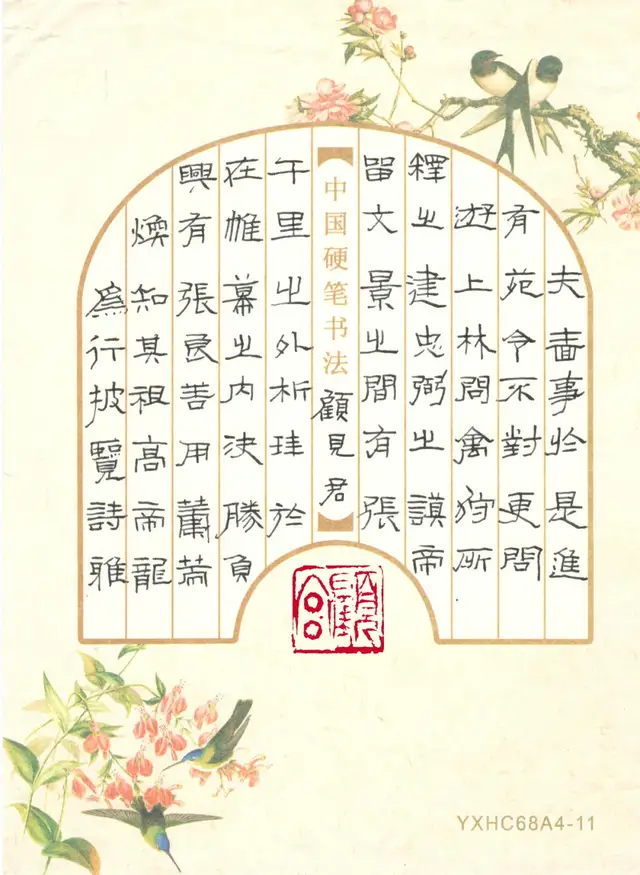 夫嗇事於是進
有苑令不對更問
遊上林問禽狩所
釋之建忠弼之謨帝
留文景之間有張
中国硬笔书法
顧見君
千里之外析珪於
在帷幕之内決勝負
興有張良善用籌策
煥知其祖高帝龍
爲行披覽詩雅
YXHC68A4-11